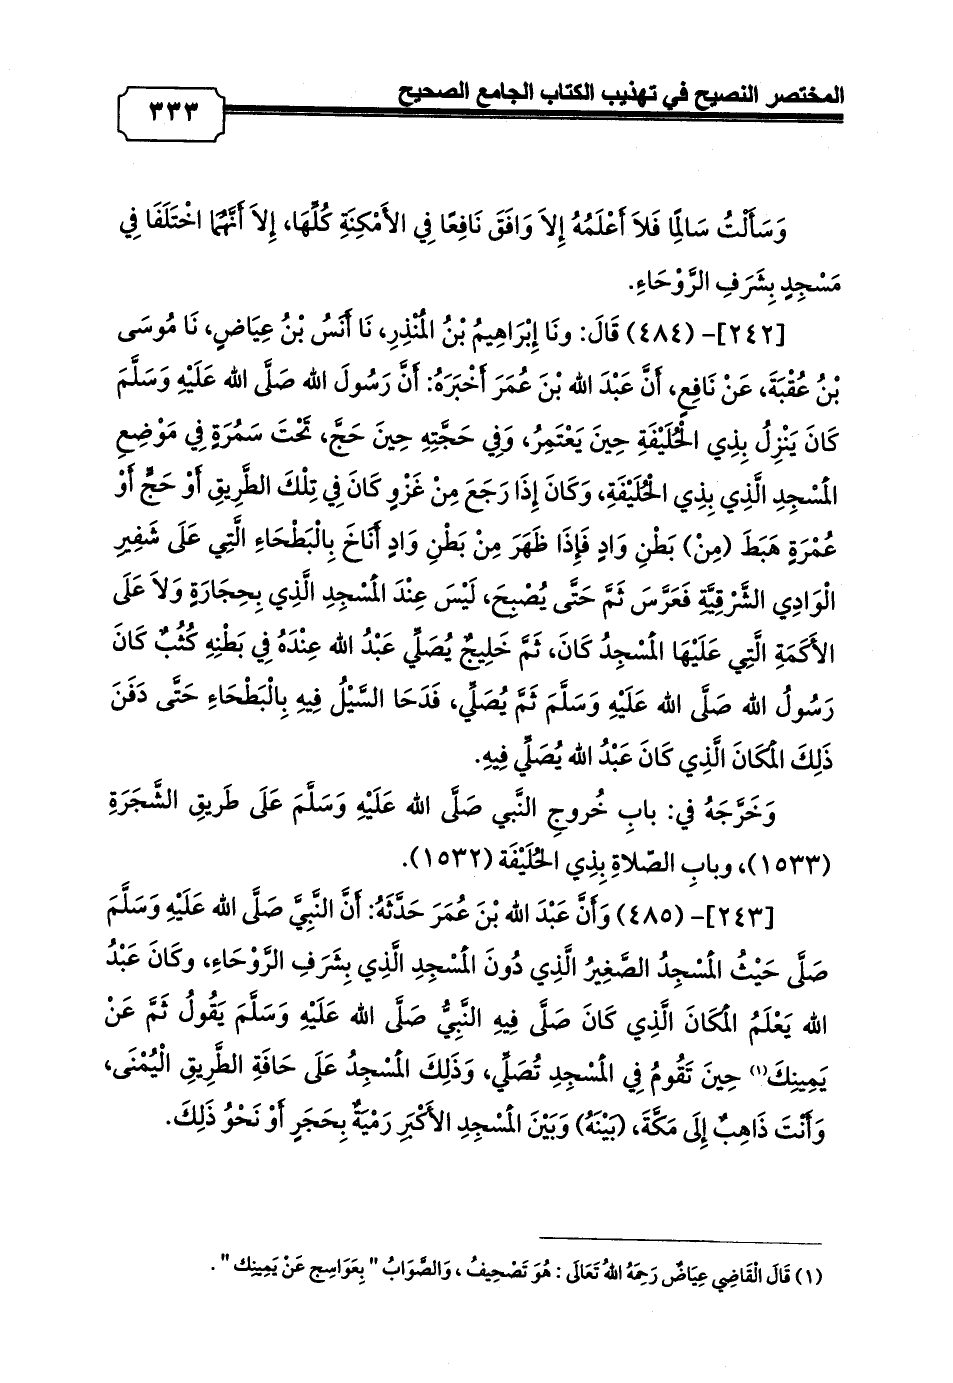 المختصر النصيح في تهذيب الكتاب الجامع الصحيح
٣٣٣
وَسَأَلْتُ سَالِمًا فَلاَ أَعْلَمُهُ إِلاَ وَافَقَ نَافِعًا فِي الأَمْكِنَةِ كُلِّهَا، إِلاَ أَنَّهُمَا اخْتَلَفَا فِي
مَسْجِدٍ بِشَرَفِ الرَّوْحَاءِ.
[٢٤٢]- (٤٨٤) قَالَ: ونَا إِبْرَاهِيمُ بْنُ الْمُنْذِرِ، نَا أَنَسُ بْنُ عِيَاضٍ، نَا مُوسَى
بْنُ عُقْبَةَ، عَنْ نَافِعٍ، أَنَّ عَبْدَ الله بْنَ عُمَرَ أَخْبَرَهُ: أَنَّ رَسُولَ الله صَلَّى الله عَلَيْهِ وَسَلَّمَ
كَانَ يَنْزِلُ بِذِي الْحُلَيْفَةِ حِينَ يَعْتَمِرُ، وَفِي حَجَّتِهِ حِينَ حَجَّ، تَحْتَ سَمُرَةٍ فِي مَوْضِعِ
الْمَسْجِدِ الَّذِي بِذِي الْحُلَيْفَةِ، وَكَانَ إِذَا رَجَعَ مِنْ غَزْوٍ كَانَ فِي تِلْكَ الطَّرِيقِ أَوْ حَجٍّ أَوْ
عُمْرَةٍ هَبَطَ (مِنْ) بَطْنِ وَادٍ فَإِذَا ظَهَرَ مِنْ بَطْنِ وَادٍ أَنَاخَ بِالْبَطْحَاءِ الَّتِي عَلَى شَفِيرِ
الْوَادِي الشَّرْقِيَّةِ فَعَرَّسَ ثَمَّ حَتَّى يُصْبِحَ، لَيْسَ عِنْدَ الْمَسْجِدِ الَّذِي بِحِجَارَةٍ وَلاَ عَلَى
الأَكَمَةِ الَّتِي عَلَيْهَا الْمَسْجِدُ كَانَ، ثَمَّ خَلِيجٌ يُصَلِّي عَبْدُ الله عِنْدَهُ فِي بَطْنِهِ كُثُبٌ كَانَ
رَسُولُ الله صَلَّى الله عَلَيْهِ وَسَلَّمَ ثَمَّ يُصَلِّي، فَدَحَا السَّيْلُ فِيهِ بِالْبَطْحَاءِ حَتَّى دَفَنَ
ذَلِكَ الْمَكَانَ الَّذِي كَانَ عَبْدُ الله يُصَلِّي فِيهِ.
وَخَرَّجَهُ في: بابِ خُروجِ النَّبي صَلَّى الله عَلَيْهِ وَسَلَّمَ عَلَى طَرِيقِ الشَّجَرَةِ
(١٥٣٣)، وبابِ الصّلاةِ بِذِي الحُلَيْفَة (١٥٣٢).
[٢٤٣]- (٤٨٥) وَأَنَّ عَبْدَ الله بْنَ عُمَرَ حَدَّثَهُ: أَنَّ النَّبِيَّ صَلَّى الله عَلَيْهِ وَسَلَّمَ
صَلَّى حَيْثُ الْمَسْجِدُ الصَّغِيرُ الَّذِي دُونَ الْمَسْجِدِ الَّذِي بِشَرَفِ الرَّوْحَاءِ، وكَانَ عَبْدُ
الله يَعْلَمُ الْمَكَانَ الَّذِي كَانَ صَلَّى فِيهِ النَّبِيُّ صَلَّى الله عَلَيْهِ وَسَلَّمَ يَقُولُ ثَمَّ عَنْ
يَمِينِكَ(١) حِينَ تَقُومُ فِي الْمَسْجِدِ تُصَلِّي، وَذَلِكَ الْمَسْجِدُ عَلَى حَافَةِ الطَّرِيقِ الْيُمْنَى،
وَأَنْتَ ذَاهِبٌ إِلَى مَكَّةَ، (بَيْنَهُ) وَبَيْنَ الْمَسْجِدِ الأَكْبَرِ رَمْيَةٌ بِحَجَرٍ أَوْ نَحْوُ ذَلِكَ.
(١) قَالَ الْقَاضِي عِيَاضٌ رَحِمَهُ اللهُ تَعَالَى : هُوَ تَصْحِيفُ ، وَالصَّوَابُ " بِعَوَاسِجٍ عَنْ يَمِينِك " .